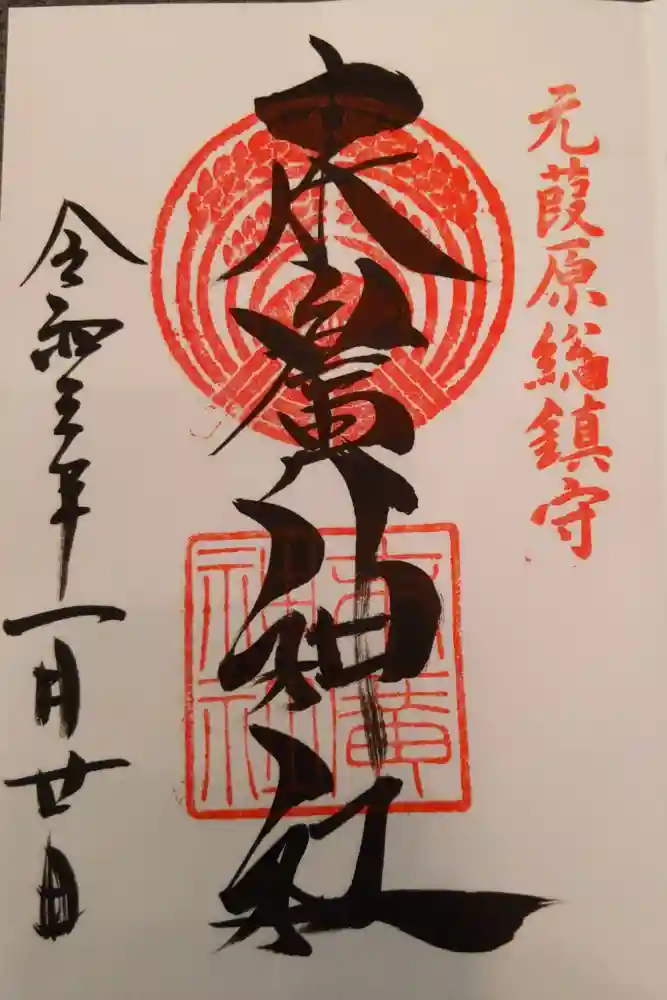 元葭原総鎮守
末廣神社
末廣
神社
令和三年一月廿日